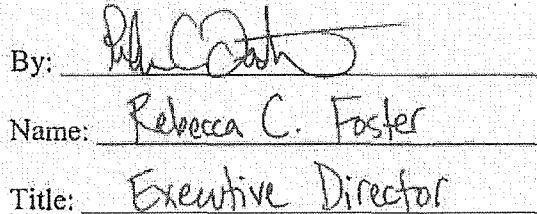 By:
Name: Rebecca C. Foster
Title: Executive Director